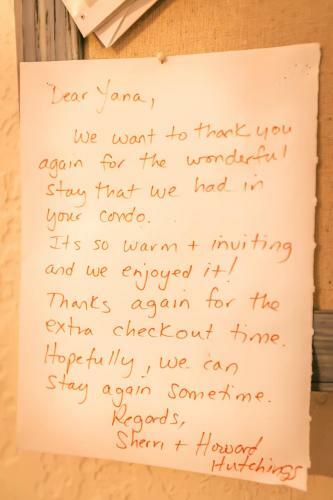 Dear Yana,
We want to thank you
again for the wonderful
stay that we had in
your condo.
Its so warm + inviting
and we enjoyed it!
Thanks again for the
extra checkout time.
Hopefully, we can
stay again sometime.
Regards,
Sherri + Howard
Hutchings